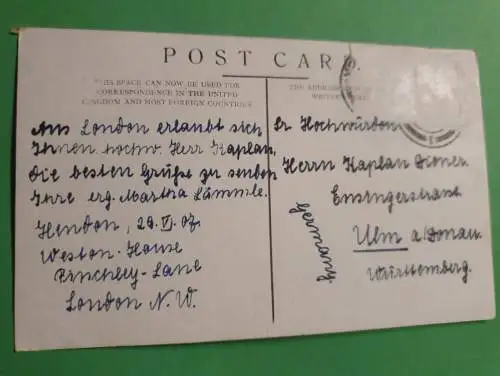 POST CARD.
THIS SPACE CAN NOW BE USED FOR
CORRESPONDENCE IN THE UNITED
KINGDOM AND MOST FOREIGN COUNTRIES
THE ADDRESS
WRITTEN
Aus London erlaubt sich
Ihnen hochw. Herr Kaplan,
die besten Grüße zu senden
Ihre erg. Martha Lämmle.
Hendon, 29. VI. 07.
Weston-House
Finchley-Lane
London N.W.
Sr Hochwürden
Herrn Kaplan
Ensingerstrasse
Ulm a/Donau
Württemberg.
Germany